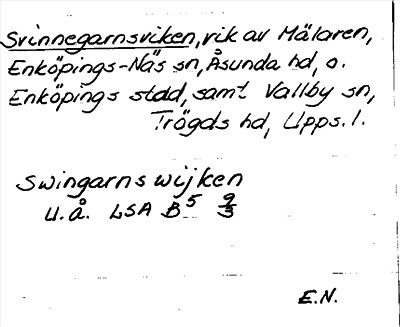 Svinnegarnsviken, vik av Mälaren,
Enköpings-Näs sn, Åsunda hd, o.
Enköpings stad, samt Vallby sn,
Trögds hd, Upps. l.
Swingarns wijken
U.å. LSA B⁵ 9/3
E.N.